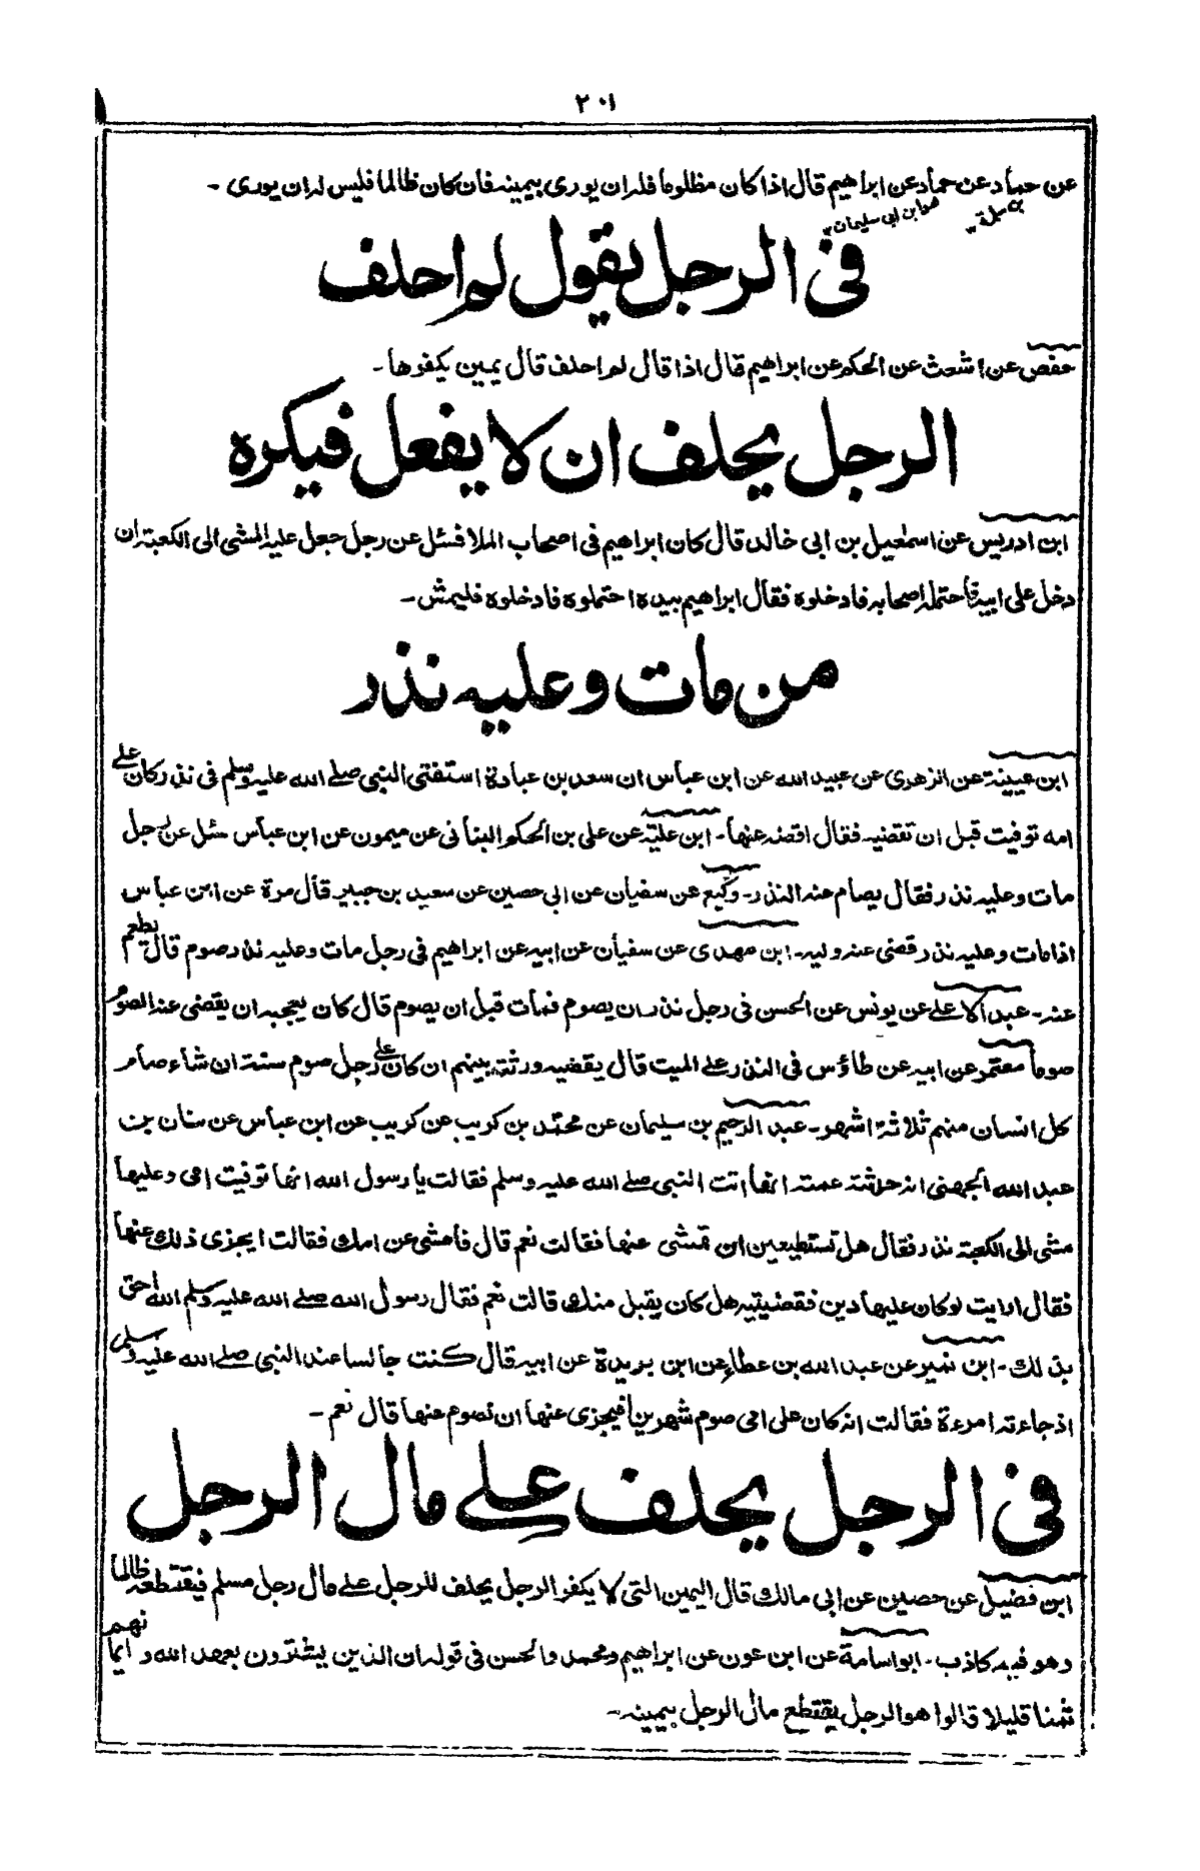 ٢٠١
عن حماد عن حماد عن ابراهيم قال اذا كان مظلوما فله ان يورى بيمينه فان كان ظالما فليس له ان يورى -
بن سلمة ١٢
هو ابن ابى سليمان ١٢
فى الرجل يقول لم احلف
حفص عن اشعث عن الحكم عن ابراهيم قال اذا قال لم احلف قال يمين يكفرها -
الرجل يحلف ان لا يفعل فيكره
ابن ادريس عن اسمعيل بن ابى خالد قال كان ابراهيم فى اصحاب الملا فسئل عن رجل جعل عليه المشى الى الكعبة ان
دخل على ابيه فاحتمله اصحابه فادخلوه فقال ابراهيم بيده احتملوه فادخلوه فليمش -
من مات وعليه نذر
ابن عيينة عن الزهرى عن عبيد الله عن ابن عباس ان سعد بن عبادة استفتى النبى صلے الله عليه وسلم فى نذر كان علے
امه توفيت قبل ان تقضيه فقال اقضه عنها - ابن علية عن على بن الحكم البنانى عن ميمون عن ابن عباس سئل عن رجل
مات وعليه نذر فقال يصام عنه النذر - وكيع عن سفيان عن ابى حصين عن سعيد بن جبير قال مرة عن ابن عباس
اذا مات وعليه نذر قضى عنه وليه - ابن مهدى عن سفيان عن ابيه عن ابراهيم فى رجل مات وعليه نذر صوم قال يطعم
عنه - عبد الاعلے عن يونس عن الحسن فى رجل نذر ان يصوم فمات قبل ان يصوم قال كان يعجبه ان يقضى عنه الصوم
صوما معتمر عن ابيه عن طاؤس فى النذر علے الميت قال يقضيه ورثته بينهم ان كان علے رجل صوم سنة ان شاء صام
كل انسان منهم ثلاثة اشهر - عبد الرحيم بن سليمان عن محمد بن كريب عن كريب عن ابن عباس عن سنان بن
عبد الله الجهنى انه حدثته عمته انها اتت النبى صلے الله عليه وسلم فقالت يا رسول الله انها توفيت امى وعليها
مشى الى الكعبة نذر فقال هل تستطيعين ان تمشى عنها فقالت نعم قال فامشى عن امك فقالت ايجزى ذلك عنها
فقال ارايت لو كان عليها دين فقضيتيه هل كان يقبل منك قالت نعم فقال رسول الله صلے الله عليه وسلم الله احق
بذلك - ابن نمير عن عبد الله بن عطاء عن ابن بريدة عن ابيه قال كنت جالسا عند النبى صلے الله عليه وسلم
اذ جاءته امرءة فقالت انه كان على امى صوم شهرين افيجزى عنها ان نصوم عنها قال نعم -
فى الرجل يحلف علے مال الرجل
ابن فضيل عن حصين عن ابى مالك قال اليمين التى لا يكفر الرجل يحلف للرجل علے مال رجل مسلم فيقتطعه ظالما
وهو فيه كاذب - ابو اسامة عن ابن عون عن ابراهيم ومحمد والحسن فى قوله ان الذين يشترون بعهد الله وايمانهم
ثمنا قليلا قالوا هو الرجل يقتطع مال الرجل بيمينه -